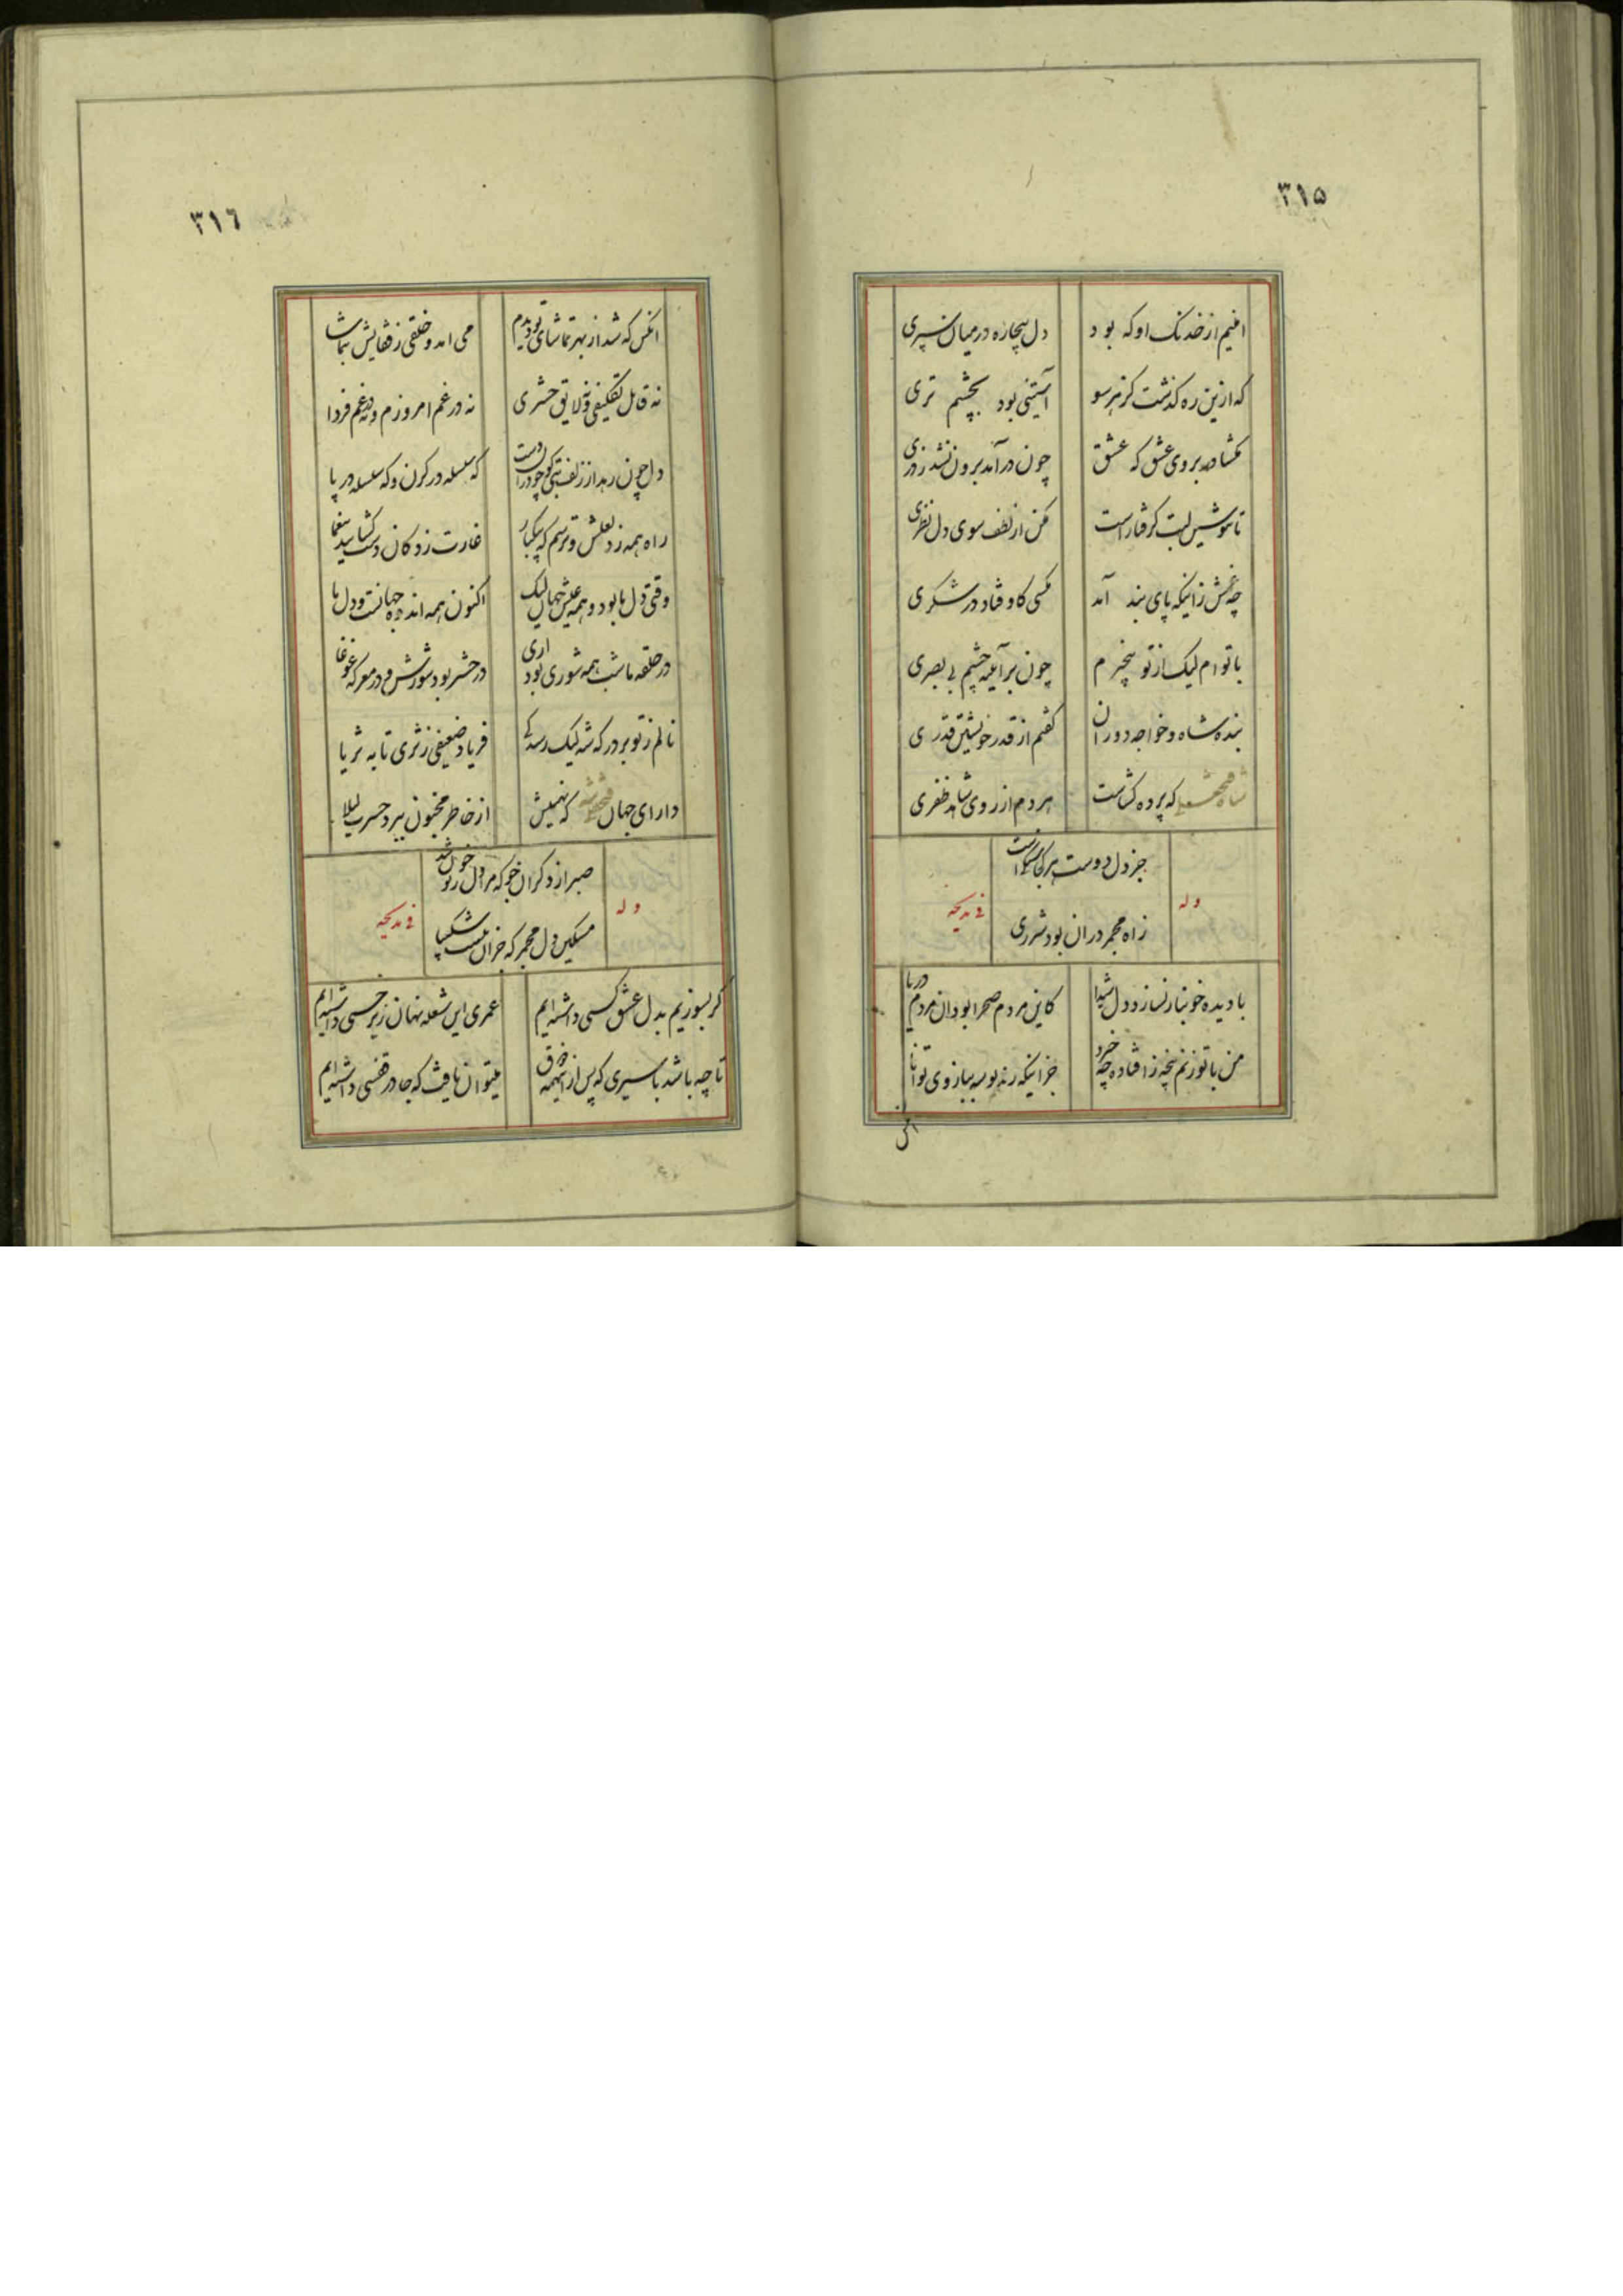 ۳۱۵
ایمنیم از خدنک او که بود
دل بیچاره در میان سپری
که ازین ره کذشت کز هر سو
آستینی بود بچشم تری
مکشا در بروی عشق که عشق
چون درآمد برون نشد ز دری
تا بنوشین لبت کرفتار است
مکن از لطف سوی دل نظری
چه غمش زانیکه پای بند آمد
مکسی کاوفتاد در شکری
با توام لیک از تو بیخبرم
چون بر آئینه چشم بی بصری
بنده شاه و خواجه دوران
کفتم از قدر خویشتن قدری
شاه فتحعلی که پرده کشاست
هر دم از روی شاهد ظفری
وله
جز دل دوست هر کجا سنک است
ز اه مجمر در ان بود شرری
فی مدیحه
با دیده خونبار نسازد دل شیدا
کاین مردم صحرا بود وان مردم دریا
من با تو زنم پنجه ز افتاده چه خیزد
جز اینکه زند بوسه ببازوی توانا
انکس
۳۱۶
انکس که شد از بهر تماشای تو دیدم
می امد و خلقی ز قفایش بتماشا
نه قابل تکلیفی و نه لایق حشری
نه در غم امروزم و نه در غم فردا
دل چون رهد از زلف بتی کو چو در اویخت
که سلسله در کردن و که سلسله در پا
راه همه زد لعلش و ترسم که بیکبار
غارت زدکان دست کشایند بیغما
وقتی دل ما بود و همه عیش جهان لیک
اکنون همه اندوه جهانست و دل ما
در حلقه ما شب همه شوری بود اری
در حشر بود شورش و در معرکه غوغا
نالم ز تو بر درکه شه لیک رسد کی
فریاد ضعیفی ز ثری تا به ثریا
دارای جهان فتحعلی شه که نهیبش
از خاطر مجنون ببرد حسرت لیلا
وله
صبر از دکران جو که مرا دل ز تو خون شد
مسکین دل مجمر که جز ان نیست شکیبا
فی مدیحه
کر بسوزیم بدل عشق کسی داشته ایم
عمری این شعله نهان زیر خسی داشته ایم
تا چه باشد باسیری که پس از اینهمه ذوق
میتوان یافت که جا در قفسی داشته ایم